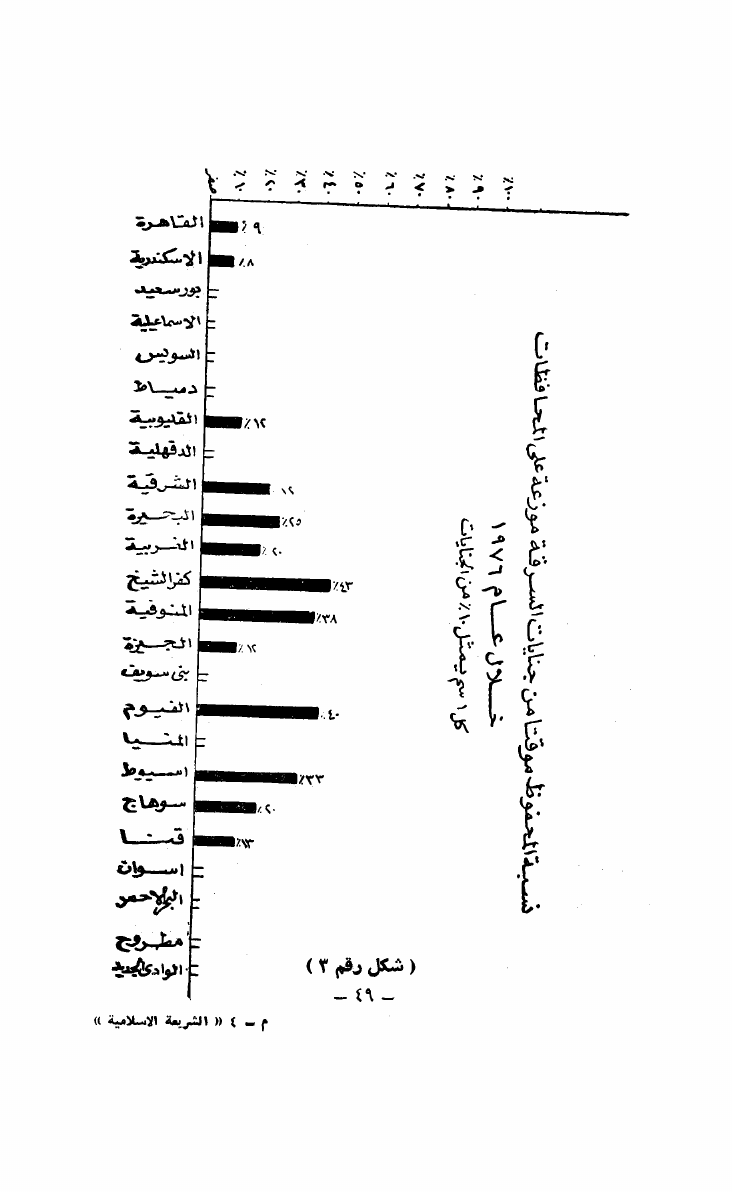 صفر ٪١٠ ٪٢٠ ٪٣٠ ٪٤٠ ٪٥٠ ٪٦٠ ٪٧٠ ٪٨٠ ٪٩٠ ٪١٠٠
القاهرة ٪٩
الاسكندرية ٪٨
بورسعيد
الاسماعيلية
السويس
دمياط
القليوبية ٪١٢
الدقهلية
الشرقية
البحيرة ٪٢٥
الغربية ٪٢٠
كفر الشيخ ٪٤٣
المنوفية ٪٣٨
الجيزة ٪١٢
بنى سويف
الفيوم ٪٤٠
المنيا
اسيوط ٪٣٣
سوهاج ٪٢٠
قنا ٪١٣
اسوان
البحر الاحمر
مطروح
الوادى الجديد
نسبة المحفوظ موقتا من جنايات السرقة موزعة على المحافظات
خلال عام ١٩٧٦
كل ١ سم يمثل ١٠٪ من الجنايات
( شكل رقم ٣ )
— ٤٩ —
م — ٤ « الشريعة الاسلامية »